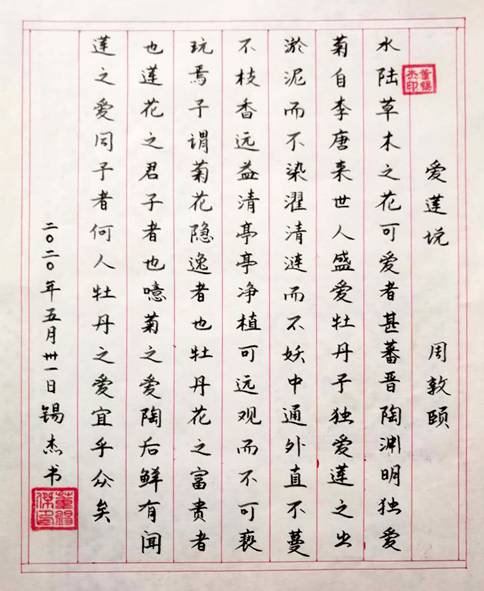 爱莲说 周敦颐
水陆草木之花可爱者甚蕃晋陶渊明独爱
菊自李唐来世人盛爱牡丹予独爱莲之出
淤泥而不染濯清涟而不妖中通外直不蔓
不枝香远益清亭亭净植可远观而不可亵
玩焉予谓菊花隐逸者也牡丹花之富贵者
也莲花之君子者也噫菊之爱陶后鲜有闻
莲之爱同予者何人牡丹之爱宜乎众矣
二〇二〇年五月卅一日锡杰书